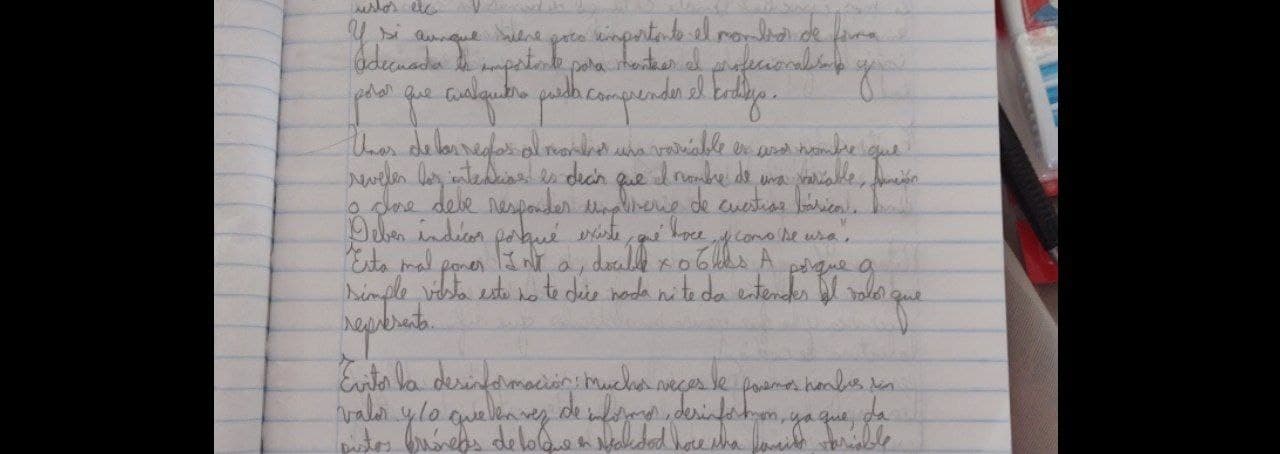 etc
Y si aunque suene poco importante el nombrar de forma
Adecuada es importante para mantener el profecionalismo y
para que cualquiera pueda comprender el kodigo.
Unas de las reglas al nombrar una variable es usar nombre que
revelen las intenciones es decir que el nombre de una variable, función
o clase debe responder una serie de cuestias básicas.
Deben indicar porqué existe, qué hace, y como se usa".
Esta mal poner INT a, double x o A porque a
simple vista esto no te dice nada ni te da entender el valor que
representa.
Evitar la desinformación: muchas veces le ponemos nombres sin
valor y/o que en vez de informar, desinforman, ya que, da
pistas erróneas de lo que en realidad hace una función, variable